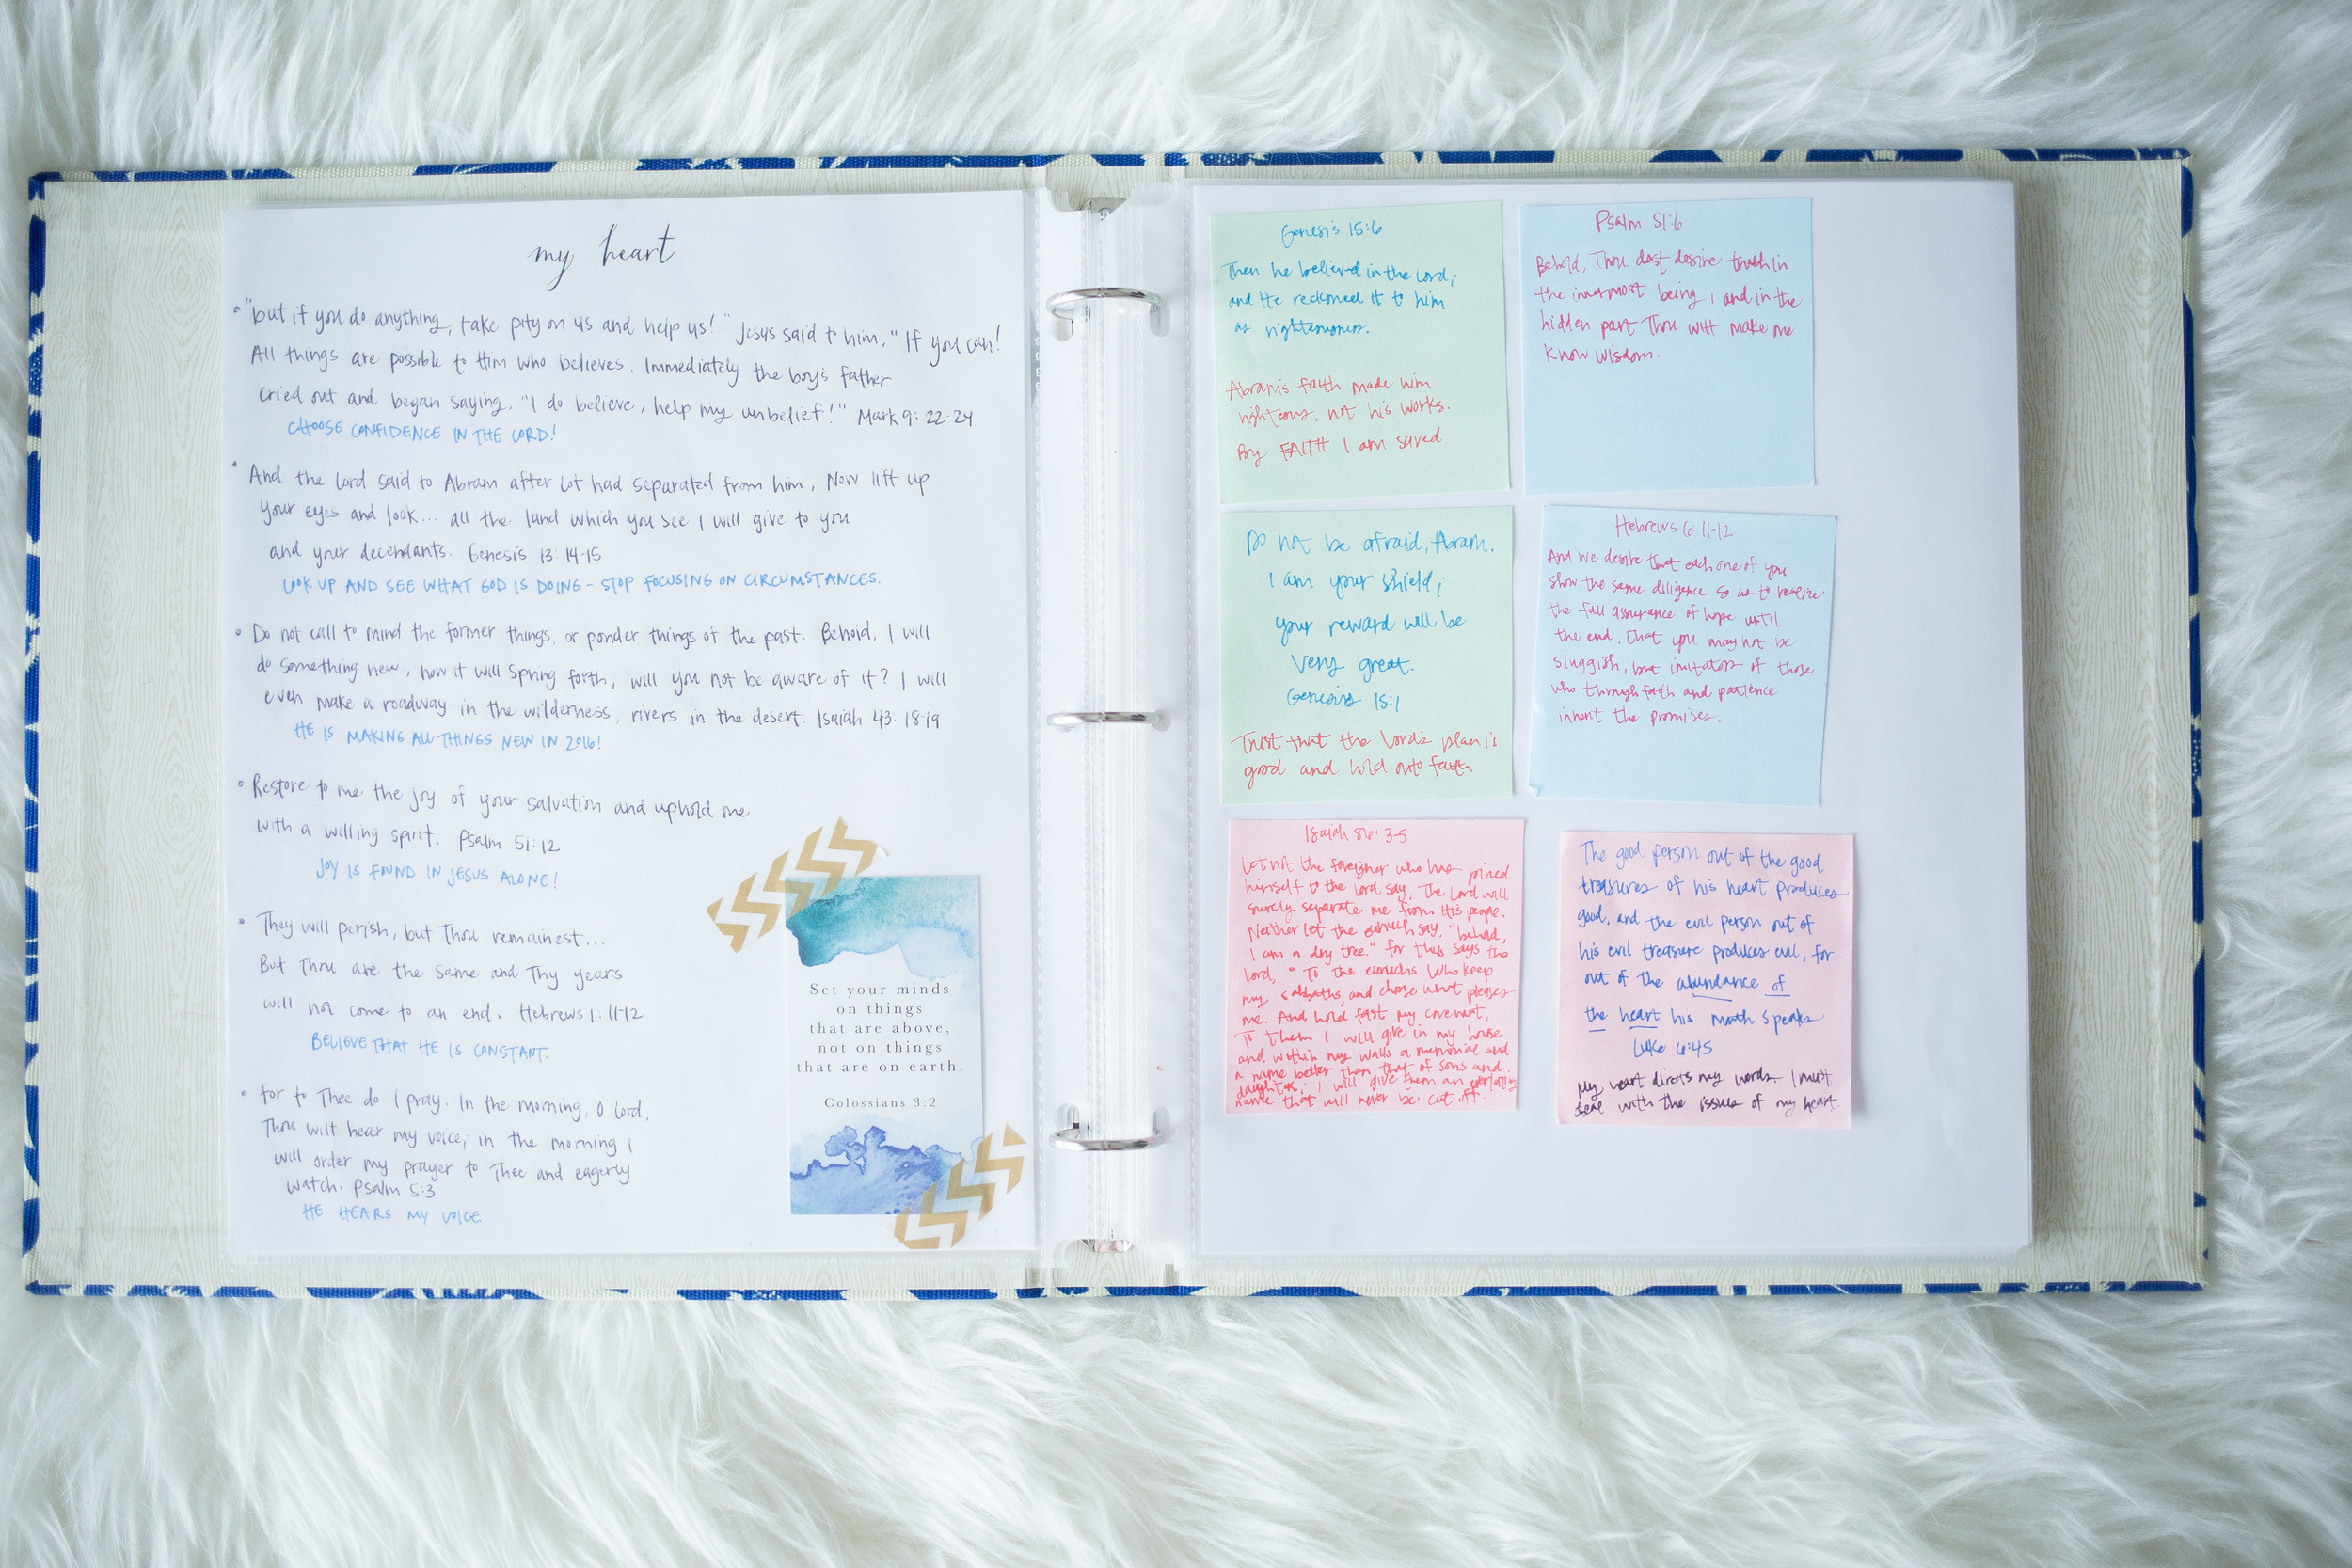 my heart
"but if you do anything, take pity on us and help us!" Jesus said to him, "If you can!
All things are possible to Him who believes. Immediately the boy's father
cried out and began saying, "I do believe, help my unbelief!" Mark 9:22-24
CHOOSE CONFIDENCE IN THE LORD!
And the Lord said to Abram after Lot had separated from him, Now lift up
your eyes and look... all the land which you see I will give to you
and your decendants. Genesis 13:14-15
LOOK UP AND SEE WHAT GOD IS DOING - STOP FOCUSING ON CIRCUMSTANCES.
Do not call to mind the former things, or ponder things of the past. Behold, I will
do something new, now it will spring forth, will you not be aware of it? I will
even make a roadway in the wilderness, rivers in the desert. Isaiah 43:18-19
HE IS MAKING ALL THINGS NEW IN 2016!
Restore to me the joy of your salvation and uphold me
with a willing spirit. Psalm 51:12
JOY IS FOUND IN JESUS ALONE!
They will perish, but Thou remainest...
But Thou are the same and Thy years
will not come to an end. Hebrews 1:11-12
BELIEVE THAT HE IS CONSTANT.
For to Thee do I pray. In the morning, O Lord,
Thou wilt hear my voice; in the morning I
will order my prayer to Thee and eagerly
watch. Psalm 5:3
HE HEARS MY VOICE
Set your minds
on things
that are above,
not on things
that are on earth.
Colossians 3:2
Genesis 15:6
Then he believed in the Lord;
and He reckoned it to him
as righteousness.
Abram's faith made him
righteous, not his works.
By FAITH I am saved
Psalm 51:6
Behold, Thou dost desire truth in
the innermost being, and in the
hidden part Thou wilt make me
know wisdom.
Do not be afraid, Abram.
I am your shield;
your reward will be
very great.
Genesis 15:1
Trust that the Lord's plan is
good and hold onto faith
Hebrews 6:11-12
And we desire that each one of you
show the same diligence so as to realize
the full assurance of hope until
the end, that you may not be
sluggish, but imitators of those
who through faith and patience
inherit the promises.
Isaiah 56:3-5
Let not the foreigner who has joined
himself to the Lord say, The Lord will
surely separate me from His people.
Neither let the eunuch say, "behold,
I am a dry tree." For thus says the
Lord, "To the eunuchs who keep
my sabbaths, and choose what pleases
me. And hold fast my covenant,
To them I will give in my house
and within my walls a memorial and
a name better than that of sons and
daughters; I will give them an everlasting
name that will never be cut off.
The good person out of the good
treasures of his heart produces
good, and the evil person out of
his evil treasure produces evil, for
out of the abundance of
the heart his mouth speaks
Luke 6:45
My heart directs my words. I must
deal with the issues of my heart.